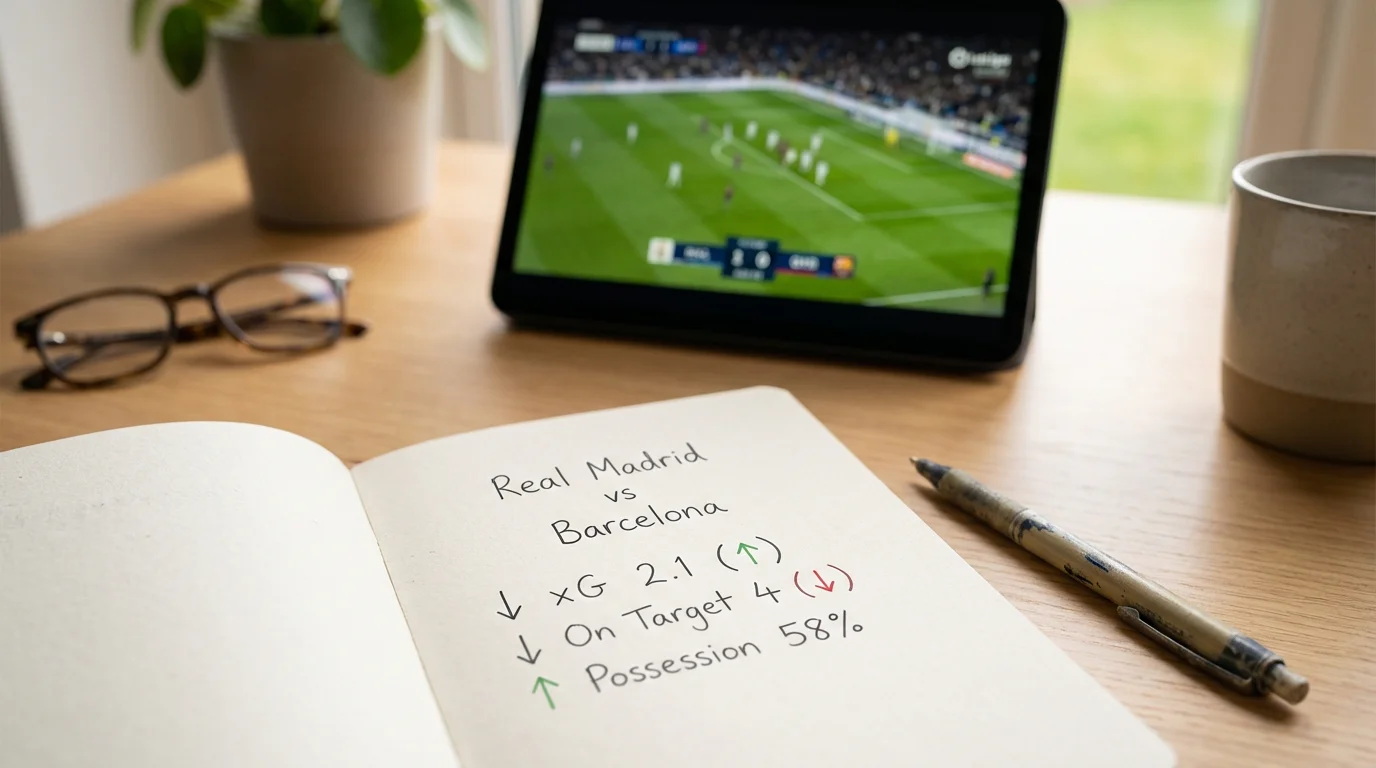 Real Madrid
vs
Barcelona
↓ xG 2.1 (↑)
↓ On Target 4 (↓)
↑ Possession 58%